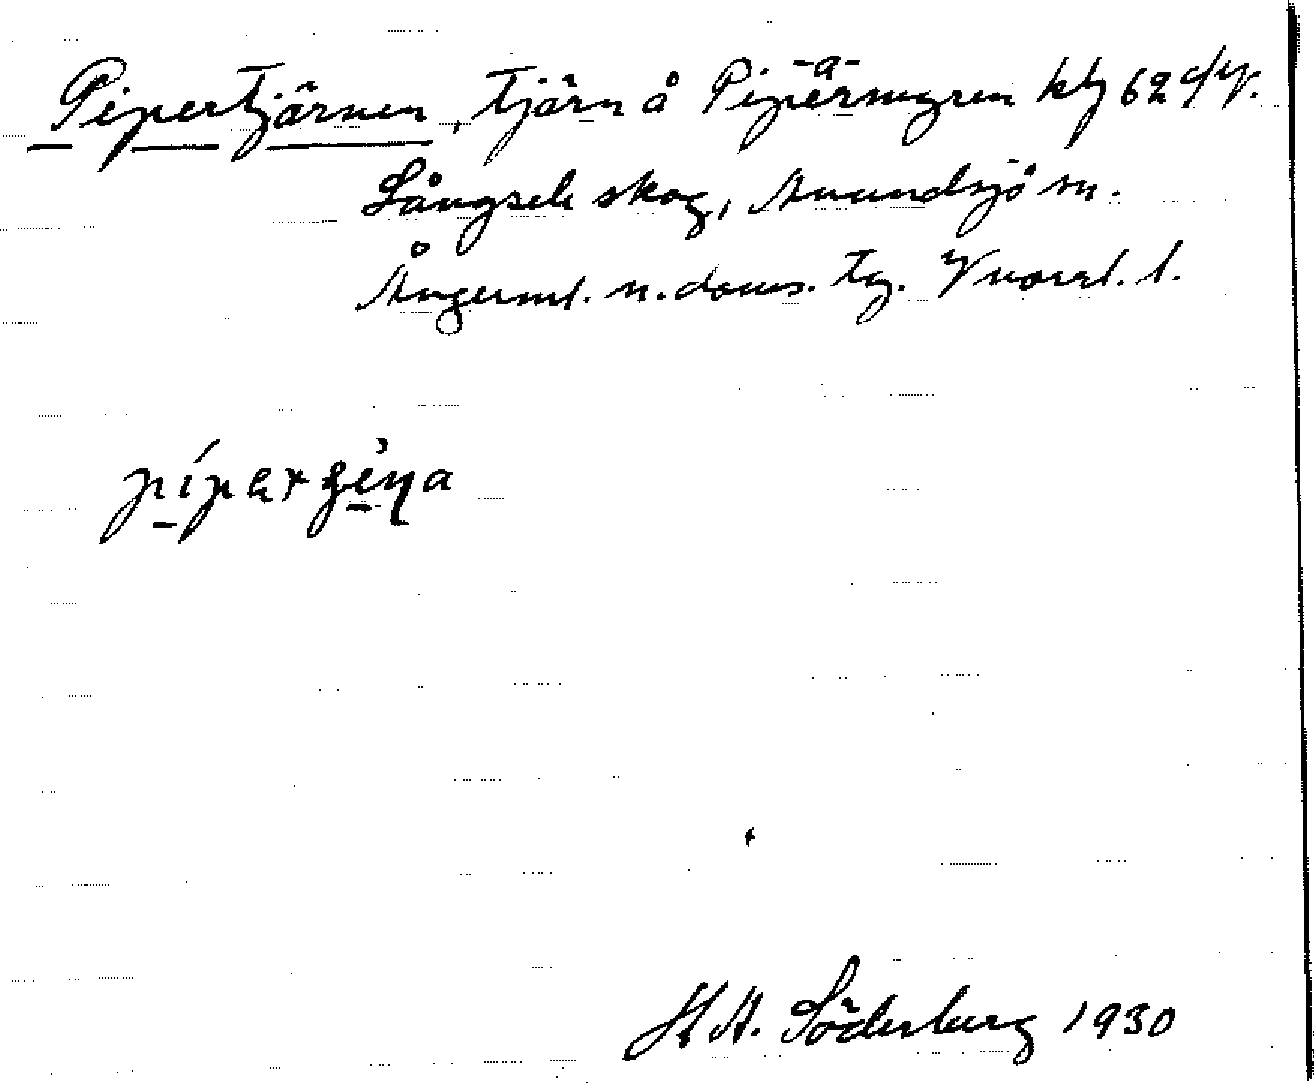 Pipertjärnen, tjärn å Pipermyren kbl 62 d/y.
-a-
Långsele skog, Anundsjö sn.
Ångerml. n. doms. tg. Vnorrl. l.
H A. Söderberg 1930